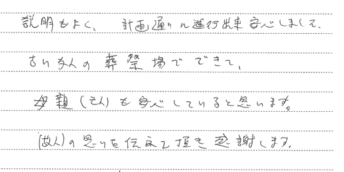 説明もよく、計画通りに進行出来安心しまして、
古い友人の葬祭場でできて、
母親(さん)も安心していると思います。
(故人)の思いを伝えて頂き感謝します。